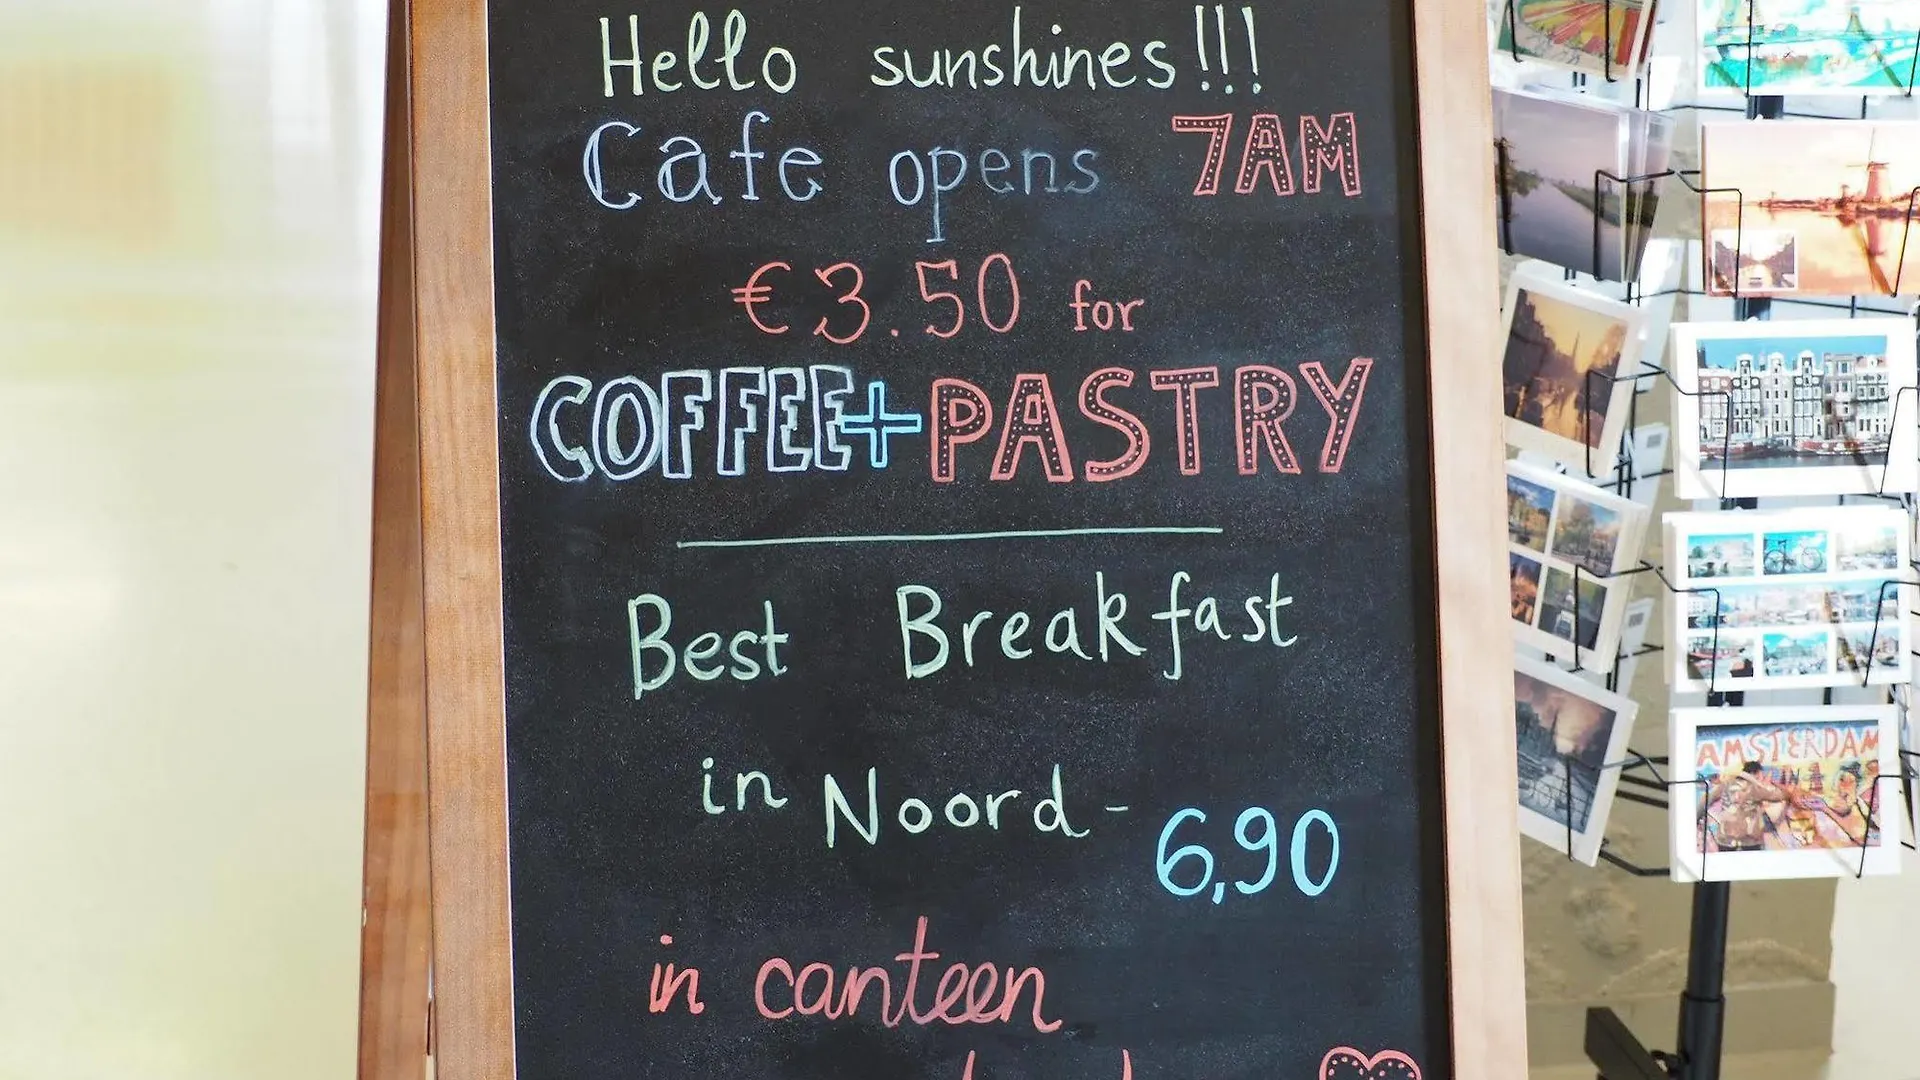 Hello sunshines!!!
Cafe opens 7AM
€3.50 for
COFFEE+PASTRY
Best Breakfast
in Noord - 6,90
in canteen
AMSTERDAM